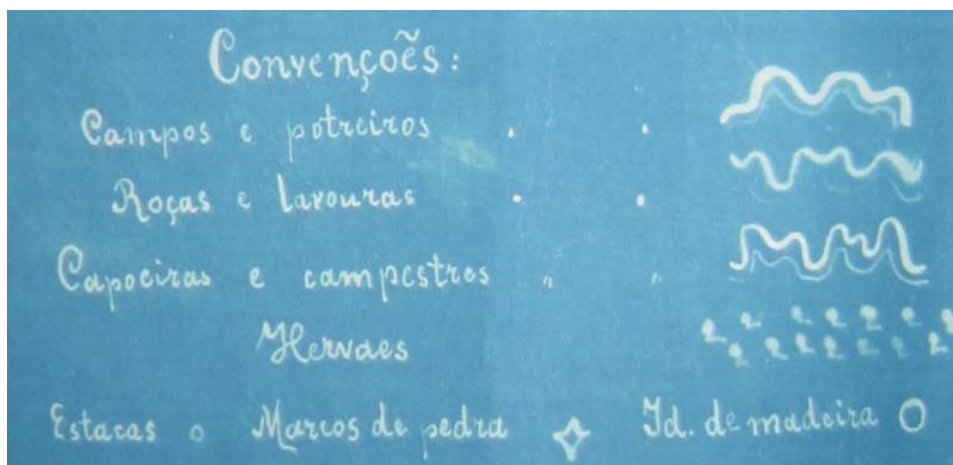 Convenções:
Campos e potreiros . .
Roças e lavouras . .
Capoeiras e campestres " "
Hervaes
Estacas o Marcos de pedra Id. de madeira O